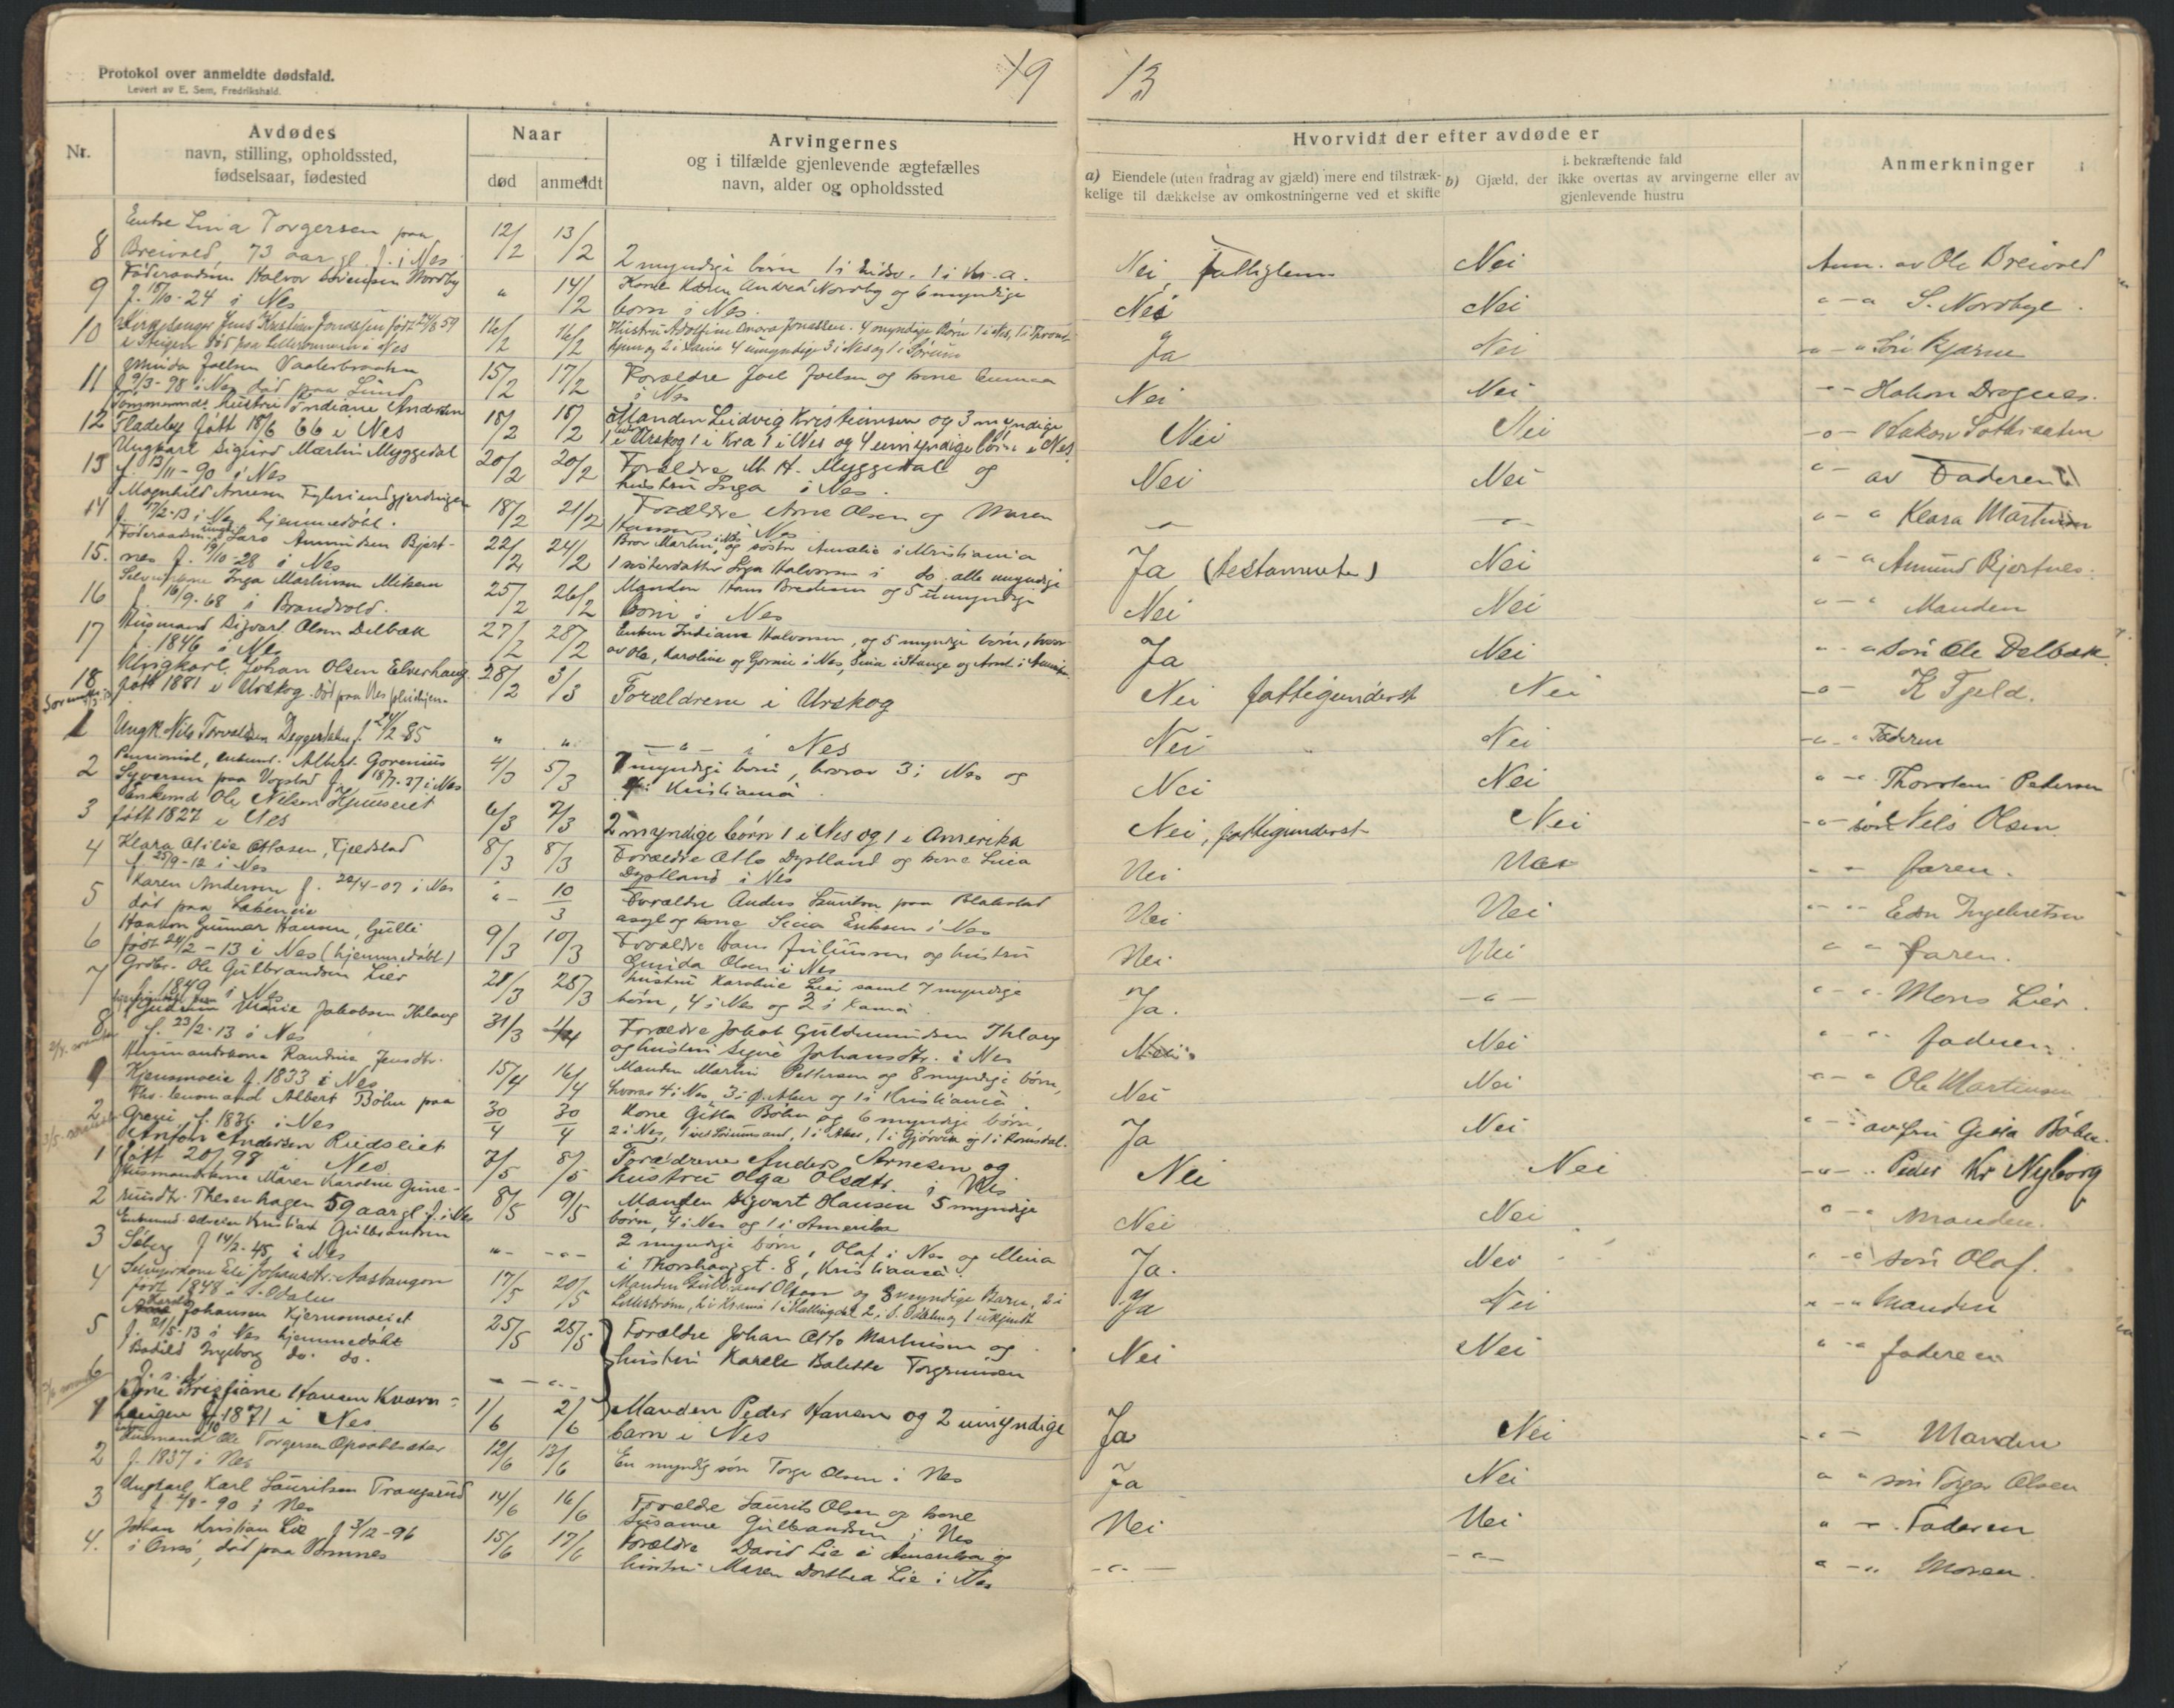 Protokol over anmeldte dødsfald.
Levert av E. Sem, Fredrikshald.
19 13
Nr.
Avdødes
navn, stilling, opholdssted,
fødselsaar, fødested
Naar
død anmeldt
Arvingernes
og i tilfælde gjenlevende ægtefælles
navn, alder og opholdssted
Hvorvidt der efter avdøde er
a) Eiendele (uten fradrag av gjæld) mere end tilstræk-
kelige til dækkelse av omkostningerne ved et skifte
i bekræftende fald
b) Gjæld, der ikke overtas av arvingerne eller av
gjenlevende hustru
Anmerkninger
Enke Lina Torgersen paa
8 Breivold, 73 aar gl. f. i Nes 12/2 13/2 2 myndige børn 1 i Eidsv. 1 i Kr.a. Nei, Nei Anm. av Ole Breivold
Føderaadsm Halvor Nordby
9 f. 15/10-24 i Nes " 14/2 Kone Karen Andrea Nordby og 6 myndige
børn i Nes. Nei Nei " - " S. Nordbye.
10 Kirkesanger Jens Kristian Jonassen født 24/8 59
i Steigen død paa i Nes 16/2 16/2 Hustru Adolfine Jonassen. 4 myndige Børn 1 i Nes,
4 umyndige 3 i Nes og 1 i Sørum Ja Nei Søn Bjarne
Joelsen
11 f 9/3-98 i Nes død paa Lund 15/2 17/2 Forældre Joel Joelsen og kone
i Nes Nei Nei " - Hakon Dragnes.
hustru Indiane Andersen
12 Fladeby født 18/6 66 i Nes 18/2 18/2 Manden Ludvig Kristiansen og 3 myndige
1 i Urskog 1 i Kra 1 i Nes og 4 umyndige børn i Nes Nei Nei - " - Hakon
Ungkarl Sigurd Martin Myggedal
13 f. 13/11-90 i Nes 20/2 20/2 Forældre M. H. Myggedal og
hustru Inga i Nes. Nei Nei " - av Faderen
Magnhild Arnesen
14 f. 15/2-13 i Nes hjemmedøbt. 18/2 21/2 Forældre Arne Olsen og Maren
Hansen i Nes - " - - " - " - " Klara Martinsen
Lars Amundsen Bjert-
15. nes f. 19/10-28 i Nes 22/2 24/2 Bror Martin, i Nes og søster Amalie i Kristiania
1 søsterdatter Inga Halvorsen i do. alle myndige Ja (testamente) Nei " - " Amund Bjertnes.
Inga Martinsen
16 f. 16/9-68 i Brandvold. 25/2 26/2 Manden Hans og 5 umyndige
børn i Nes Nei Nei " - " Manden
Husmand Sigvart Olsen Delbæk
17 f. 1846 i Nes 27/2 28/2 Enken Indiane Halvorsen, og 5 myndige børn, hvor-
av Ole, Karoline og i Nes, i Stange og i Ja Nei " - " søn Ole Delbæk.
Ungkarl Johan Olsen Elverhaug
18 født 1881 i Urskog. død paa Nes pleiehjem 28/2 3/3 Forældrene i Urskog Nei fattigunderst Nei - " - K Fjeld.
1 Ungk. Nils Torvaldsen f. 24/2-85 " " - " - i Nes Nei Nei - " - " Faderen
Pensionist, enkemd. Albert Gorenius
2 Syversen paa Vogstad f. 18/7-27 i Nes 4/3 5/3 7 myndige børn, hvorav 3 i Nes og
4 i Kristiania. Nei Nei " - " Thorstein Pedersen
Enkemd Ole Nilsen
3 født 1827 i Nes 6/3 7/3 2 myndige børn 1 i Nes og 1 i Amerika Nei, fattigunderst Nei - " - søn Nils Olsen.
4 Klara Otilie Ottosen, Fjeldstad
f. 25/9-12 i Nes 8/3 8/3 Forældre Otto Dystland og kone Lina
Dystland i Nes Nei Nei " - faren.
5 Karen Andersen f. 20/4-07 i Nes
død paa " - 10/3 Forældre Anders paa Blakstad
asyl og kone Lina Eriksen i Nes Nei Nei " - " Edv Ingebretsen
Haakon Gunnar Hansen, Gulli
6 født 24/2-13 i Nes (hjemmedøbt) 9/3 10/3 Forældre Hans Juliussen og hustru
Gunda Olsen i Nes Nei. Nei " " faren.
7 Grdbr. Ole Gulbrandsen Lier
f. 1849 i Nes 28/3 28/3 hustru Karoline Lier samt 7 myndige
børn, 4 i Nes og 3 i Kania. Ja. - " - " - " Mons Lier.
Marie Jakobsen Ihlang
8 f. 23/2-13 i Nes 31/3 1/4 Forældre Jakob Guldmundsen Ihlang
og hustru Signe Johansdtr. i Nes Nei Nei " - " faderen.
Husmandskone Randine Jensdtr.
1 f. 1833 i Nes 15/4 16/4 Manden Martin Pettersen og 8 myndige børn,
hvorav 4 i Nes, 3 i Ø. Aker og 1 i Kristiania. Nei Nei " - " Ole Martinsen
Fhv. lensmand Albert Bøhn paa
2 Greni, f. 1836 i Nes 30/4 30/4 Kone Gitta Bøhn og 6 myndige børn,
2 i Nes, 1 ved Kristiansand, 1 i Aker, 1 i Gjøvik og 1 i Romsdal. Ja Nei " - " av fru Gitta Bøhn.
Anton Andersen Rudsleiet
1 født 20/ 98 Nes 7/5 8/5 Forældrene Anders Arnesen og
hustru Olga Olsdtr. i Nes Nei Nei - " - " Peder Kr Nyborg
Husmandskone Maren Karoline Gune-
2 rusdtr. Theserhagen 59 aar gl. f. i Nes 8/5 9/5 Manden Sigvart Hansen 5 myndige
børn, 4 i Nes og 1 i Amerika Nei Nei " - " manden.
Kristian Gulbrandsen
3 Seberg f 14/2-45 i Nes " - - " - 2 myndige børn, Olaf i Nes og Mina
i Thorshauggt. 8, Kristiania. Ja. Nei " - " søn Olaf.
4 Eli Johansdtr. Aashaugen
født 1848 i S. Odalen 17/5 20/5 Manden Gulbrand Olsen og 8 myndige Barn, 2 i
Lillestrøm, 2 i Krania 1 i Hallingdal 2 i S. Odalen og 1 ukjendt Ja Nei " - " Manden
Harald Johansen Kjernsmoeiet
5 f. 21/5-13 i Nes hjemmedøbt 25/5 28/5 Forældre Johan Otto Martinsen og
hustru Karele Balette Torgunsen Nei Nei " - " faderen
6 Bodild Ingeborg do. do. - " - " -
Kristiane Hansen Kværn-
1 haugen f. 1871 i Nes 1/6 2/6 Manden Peder Hansen og 2 umyndige
barn i Nes Ja Nei - " - Manden
Husmand Ole Torgersen Opsahlseter
2 f. 1837 i Nes 12/6 13/6 En myndig søn Torger Olsen i Nes Ja Nei " " søn Torger Olsen
Ungkarl Karl Lauritsen Trangsrud
3 f. 7/8-90 i Nes 14/6 16/6 Forældre Laurits Olsen og kone
Susanne Gulbrandsen i Nes Nei Nei " - " Faderen
Johan Kristian Lie f 3/12-96
4. i død paa Vormnes 15/6 17/6 Forældre David Lie i Amerika og
hustru Maren Dorthea Lie i Nes - " - - " - " - " Moren.